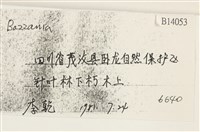 Bazzania
B14053
四川省茂汶县卧龙自然保护区
针叶林下朽木上
李乾 1981.7.24 6640